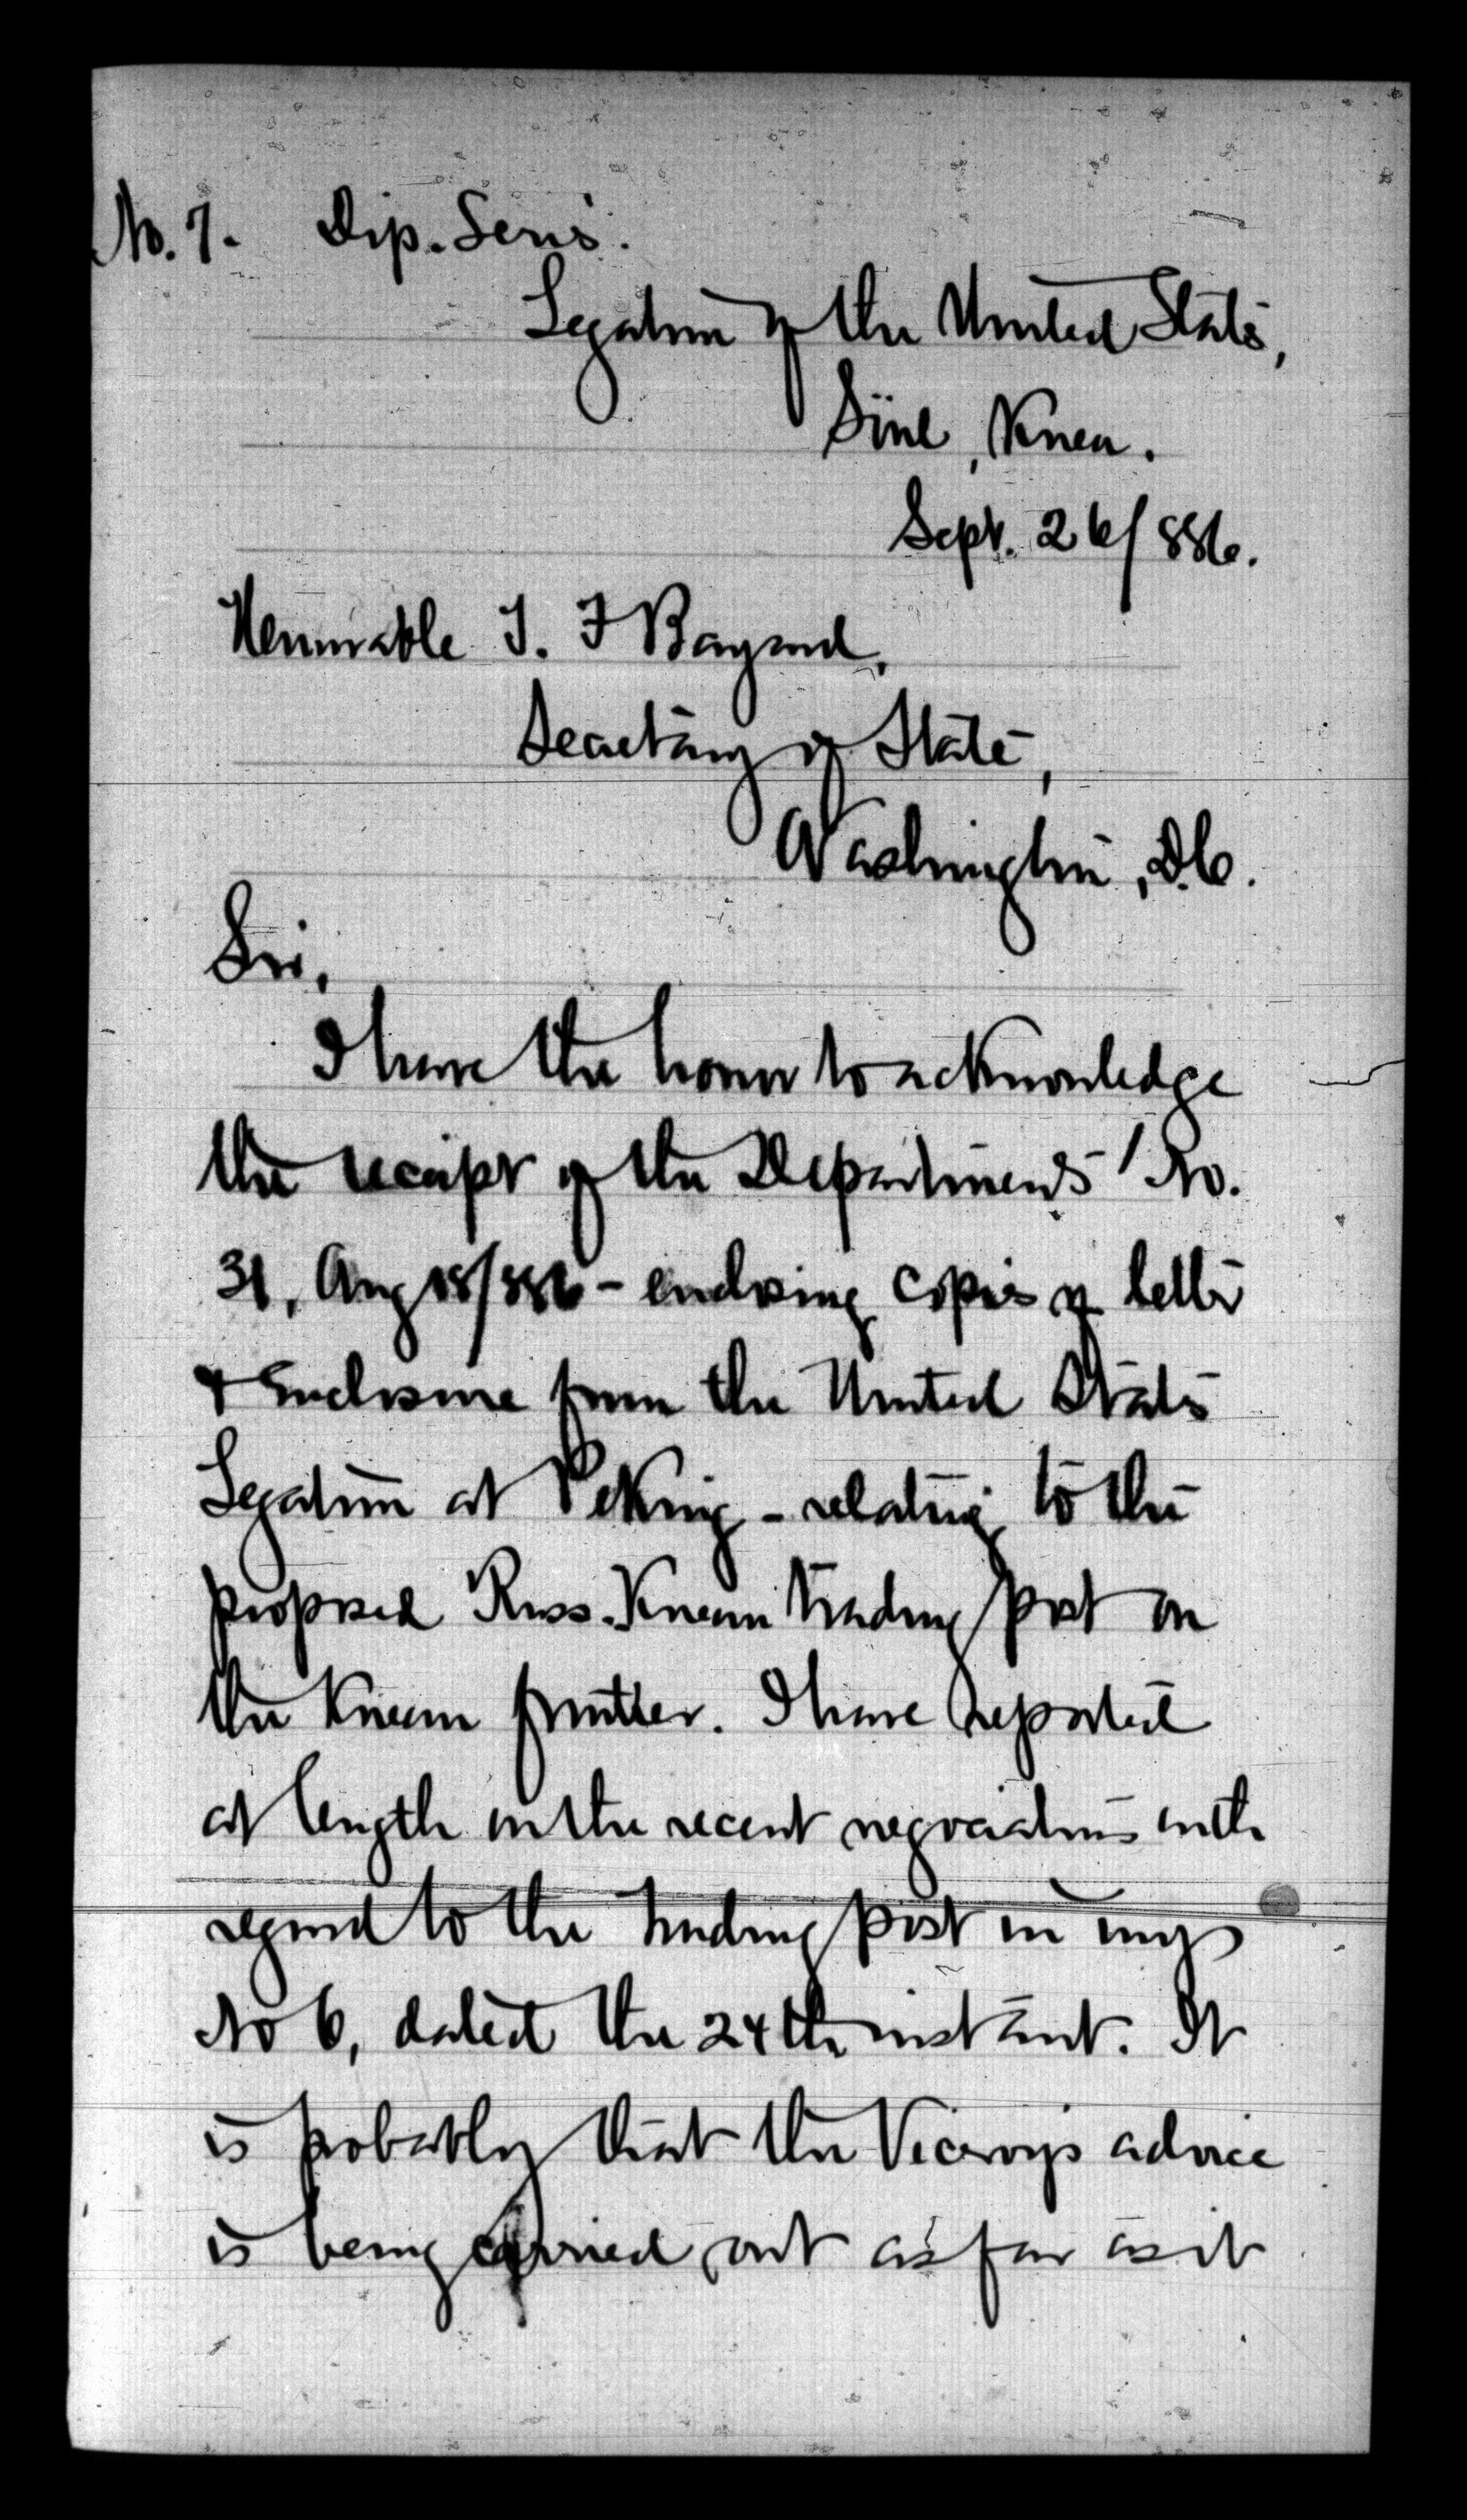 No. 7. Dip. Series.
Legation of the United States,
Söul, Korea.
Sept. 26/886.
Honorable T. F Bayard,
Secretary of State,
Washington, D.C.
Sir,
I have the honor to acknowledge
the receipt of the Department's No.
31, Aug 18/886 - enclosing copies of letter
& Enclosure from the United States
Legation at Peking - relating to the
proposed Russ-Korean trading post on
the Korean frontier. I have reported
at length on the recent negociations with
regard to the trading post in my
No 6, dated the 24th instant. It
is probably that the Viceroys advice
is being carried out as far as it